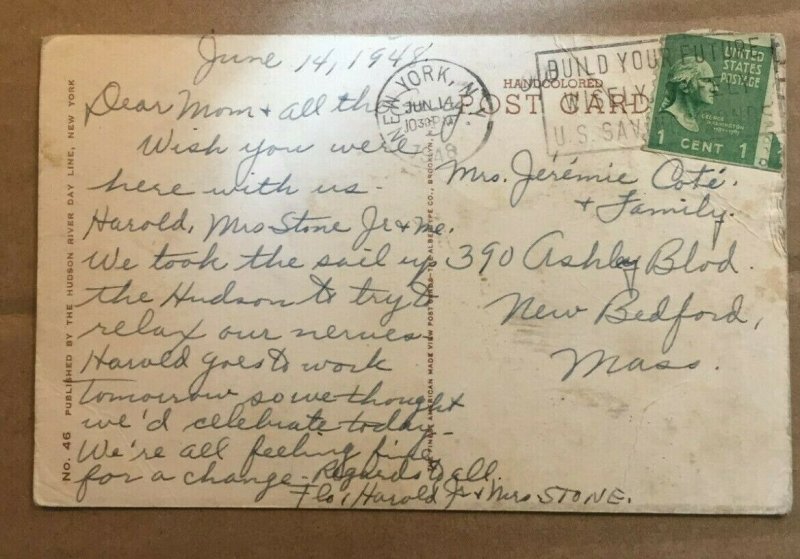 June 14, 1948.
Dear Mom & all the
Wish you were
here with us -
Harold, Mrs Stone Jr & me.
We took the sail up
the Hudson to try to
relax our nerves.
Harold goes to work
tomorrow so we thought
we'd celebrate today -
We're all feeling fine
for a change - Regards to all.
Flo, Harold Jr & Mrs STONE.
NEW YORK, N.Y.
JUN 14
1948
BUILD YOUR FUTURE
WISELY
U.S. SAV
HANDCOLORED
POST CARD
UNITED
STATES
POSTAGE
GEORGE
WASHINGTON
1 CENT 1
Mrs. Jérémie Coté.
& Family.
390 Ashley Blvd.
New Bedford,
Mass.
No. 46 PUBLISHED BY THE HUDSON RIVER DAY LINE, NEW YORK
THE FINEST AMERICAN MADE VIEW POST CARDS—THE ALBERTYPE CO., BROOKLYN, N.Y.